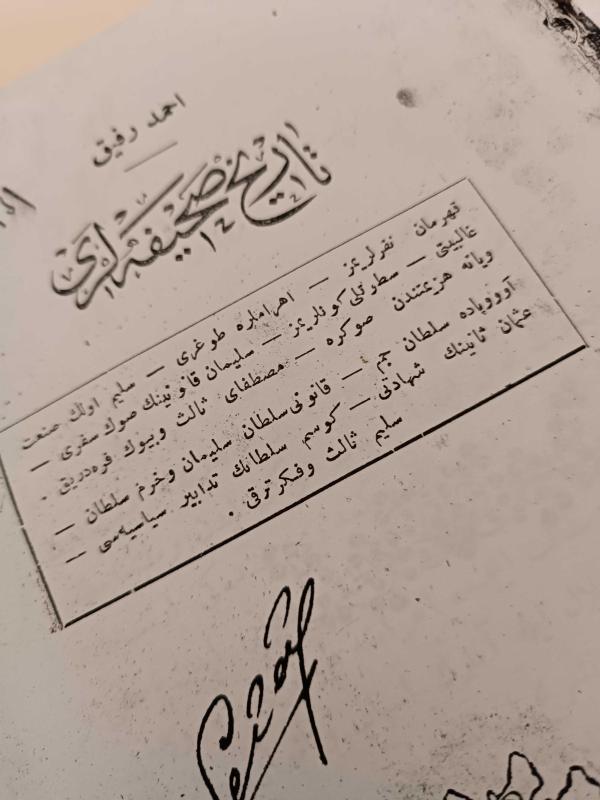 احمد رفیق
تاریخ صحیفه‌لری
قهرمان نفرلریمز — اهرامله طوغری — سلیم اولك صنعت
غالبیتی — سطوتلی کونلریمز — سلیمان قانونینك صوك سفری —
ویانه هزیمتندن صوکره — مصطفای ثالث وبیوك فره‌دریق .
آوروپاده سلطان جم — قانونی سلطان سلیمان وخرم سلطان —
عثمان ثانینك شهادتی — کوسم سلطانك تدابیر سیاسیه‌سی —
سلیم ثالث وفکر ترقی .